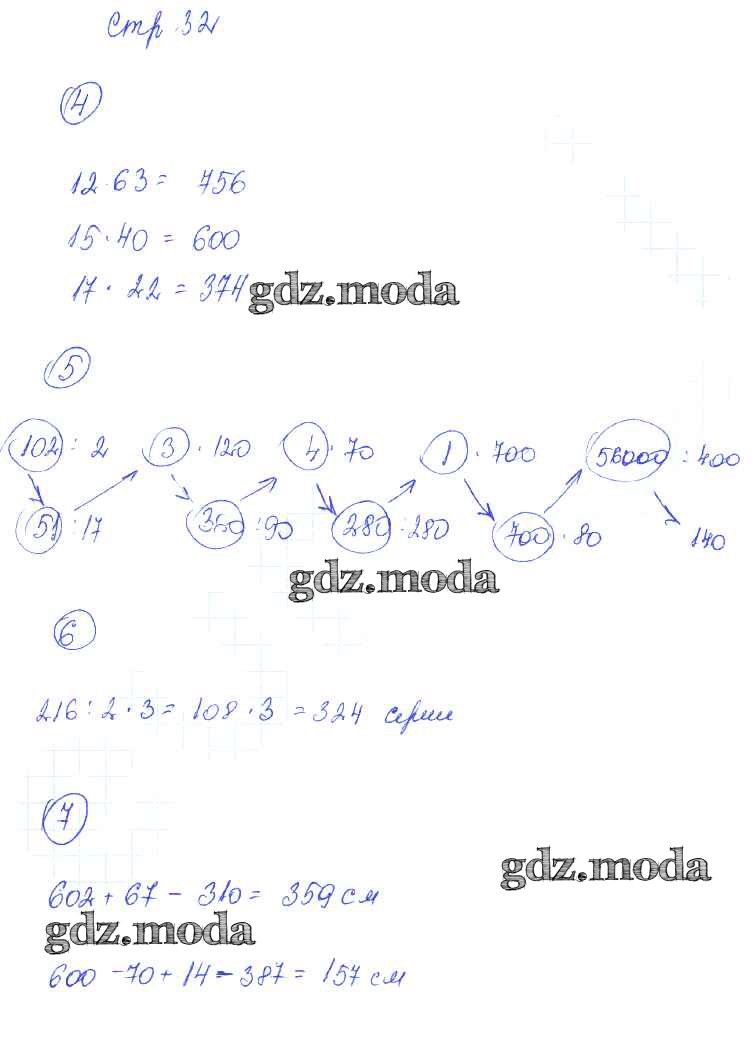 стр. 32
4
12 · 63 = 756
15 · 40 = 600
17 · 22 = 374
gdz.moda
5
102 : 2 3 · 120 4 · 70 1 · 700 56000 : 400
51 : 17 360 : 90 280 : 280 700 · 80 140
gdz.moda
6
216 : 2 · 3 = 108 · 3 = 324 серии
7
gdz.moda
602 + 67 - 310 = 359 см
gdz.moda
600 - 70 + 14 - 387 = 157 см